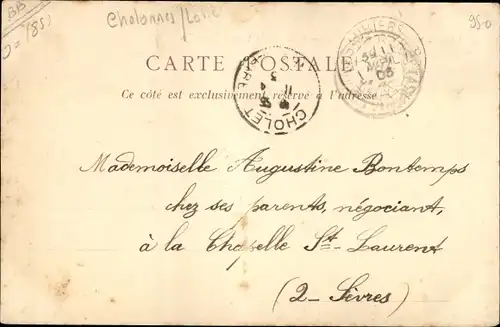 BB
85)
Chalonnes/Loire
95-0
CARTE POSTALE
Ce côté est exclusivement réservé à l'adresse
CHOLET
Mademoiselle Augustine Bontemps
chez ses parents, négociant,
à la Chapelle St-Laurent
(2-Sèvres)